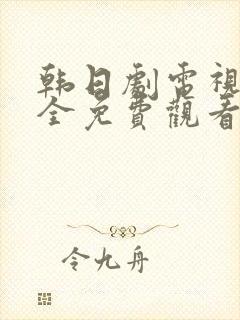 韩日劇電視
全免費觀看
令九舟